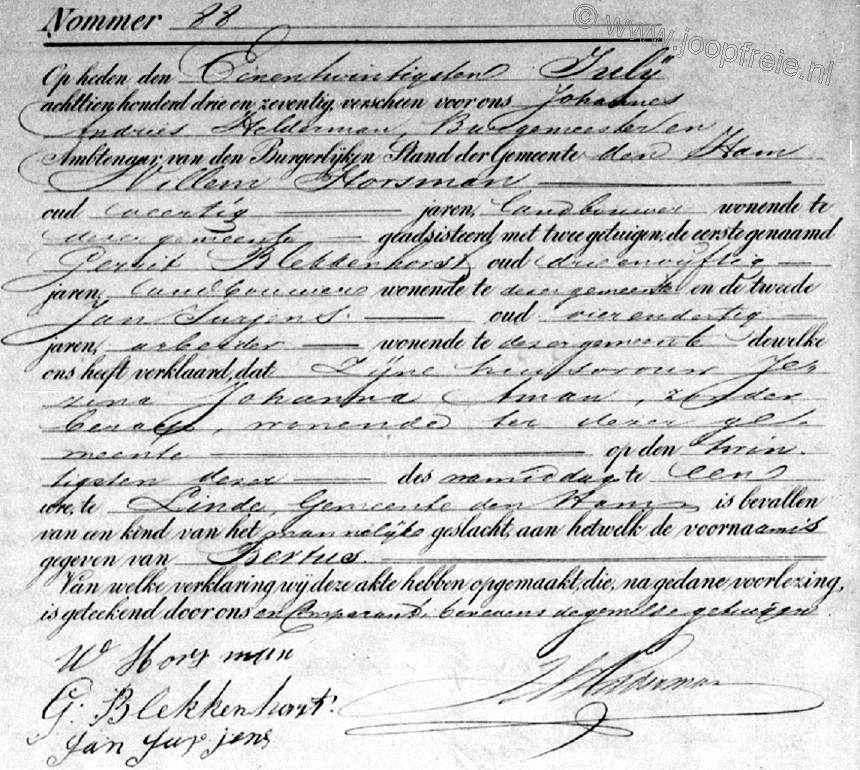 © www.joopfreie.nl
Nommer 88
Op heden den Eenentwintigsten July
achttien honderd drie en zeventig, verscheen voor ons Johannes
Andries Helderman, Burgemeester en
Ambtenaar van den Burgerlijken Stand der Gemeente den Ham
Willem Horsman
oud veertig jaren, landbouwer wonende te
dezer gemeente geadsisteerd, met twee getuigen, de eerste genaamd
Gerrit Blekkenhorst oud drieenvyftig
jaren, landbouwer wonende te dezer gemeente en de tweede
Jan Jurjens oud vierendertig
jaren, arbeider wonende te dezer gemeente dewelke
ons heeft verklaard, dat Zijne huisvrouw Je
zina Johanna Aman, zonder
beroep, wonende te dezer ge
meente op den twin
tigsten dezer des namiddag te een
ure, te Linde, Gemeente den Ham is bevallen
van een kind van het mannelijk geslacht, aan hetwelk de voornaam is
gegeven van Bertus
Van welke verklaring wij deze akte hebben opgemaakt, die, na gedane voorlezing,
is geteekend door ons en Comparant, benevens de gemelde getuigen
W Horsman
G. Blekkenhorst
Helderman
Jan Jurjens